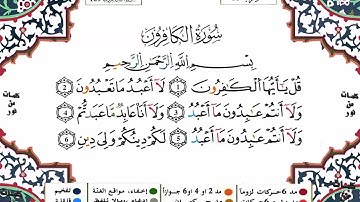 سُورَةُ الْكَافِرُونَ
بِسْمِ اللَّهِ الرَّحْمَنِ الرَّحِيمِ
قُلْ يَا أَيُّهَا الْكَافِرُونَ ١ لَا أَعْبُدُ مَا تَعْبُدُونَ ٢
وَلَا أَنْتُمْ عَابِدُونَ مَا أَعْبُدُ ٣ وَلَا أَنَا عَابِدٌ مَا عَبَدْتُمْ ٤
وَلَا أَنْتُمْ عَابِدُونَ مَا أَعْبُدُ ٥ لَكُمْ دِينُكُمْ وَلِيَ دِينِ ٦
كلمات
من
نور
كلمات
من
نور
مد 6 حركات لزوما مد 2 أو 4 أو 6 جوازاً إخفاء، ومواقع الغنة تفخيم